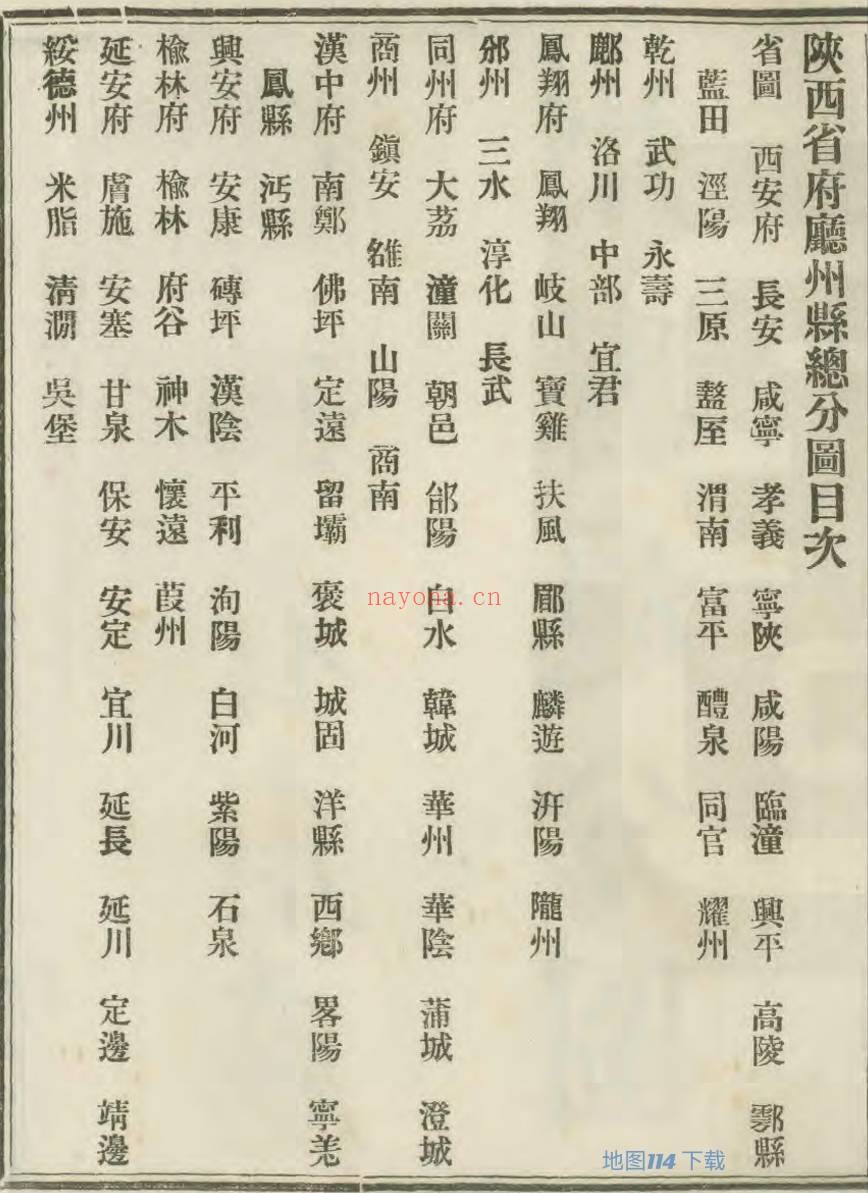 陝西省府廳州縣總分圖目次
省圖 西安府 長安 咸寧 孝義 寧陝 咸陽 臨潼 興平 高陵 鄠縣
藍田 涇陽 三原 盩厔 渭南 富平 醴泉 同官 耀州
乾州 武功 永壽
鄜州 洛川 中部 宜君
鳳翔府 鳳翔 岐山 寶雞 扶風 郿縣 麟遊 汧陽 隴州
邠州 三水 淳化 長武
同州府 大荔 潼關 朝邑 郃陽 白水 韓城 華州 華陰 蒲城 澄城
商州 鎭安 雒南 山陽 商南
漢中府 南鄭 佛坪 定遠 留壩 褒城 城固 洋縣 西鄉 畧陽 寧羌
鳳縣 沔縣
興安府 安康 磚坪 漢陰 平利 洵陽 白河 紫陽 石泉
榆林府 榆林 府谷 神木 懷遠 葭州
延安府 膚施 安塞 甘泉 保安 安定 宜川 延長 延川 定邊 靖邊
綏德州 米脂 淸澗 吳堡
nayona.cn
地图114 下载